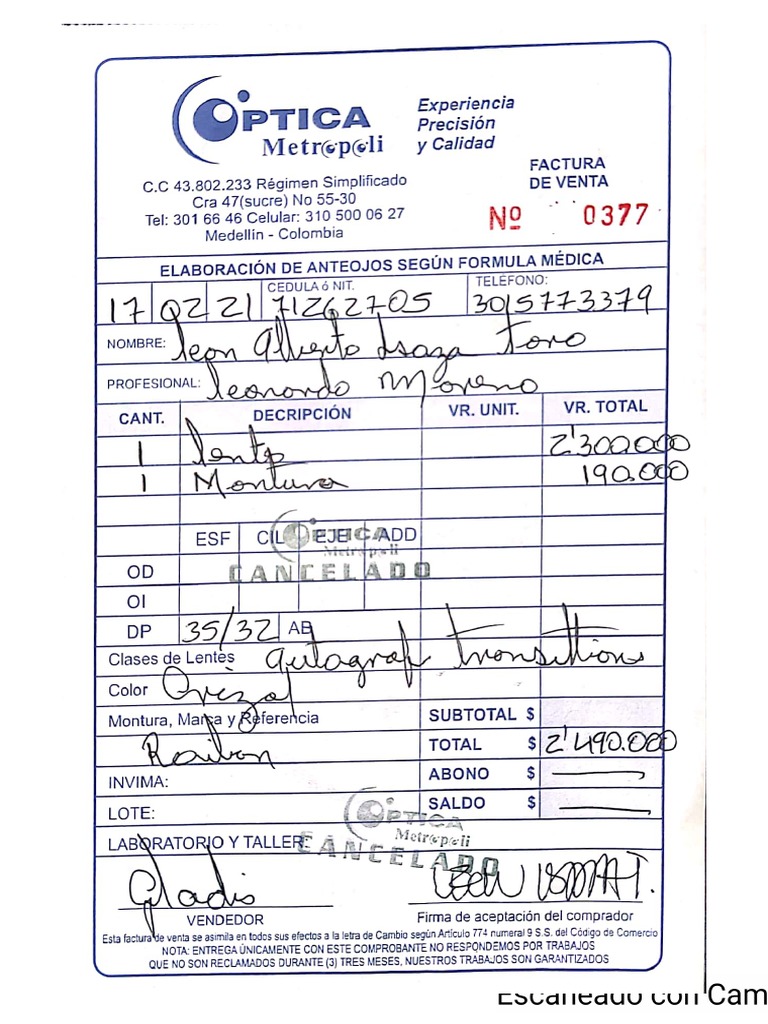 ÓPTICA
Metropoli
Experiencia
Precisión
y Calidad
C.C 43.802.233 Régimen Simplificado
Cra 47(sucre) No 55-30
Tel: 301 66 46 Celular: 310 500 06 27
Medellín - Colombia
FACTURA
DE VENTA
Nº 0377
ELABORACIÓN DE ANTEOJOS SEGÚN FORMULA MÉDICA
CEDULA ó NIT. TELÉFONO:
17 02 21 71262705 3015773379
NOMBRE: leon Alberto Isaza Toro
PROFESIONAL: leonardo Moreno
CANT. DECRIPCIÓN VR. UNIT. VR. TOTAL
1 lente 2'300.000
1 Montura 190.000
ESF CIL EJE ADD
ÓPTICA
Metropoli
CANCELADO
OD
OI
DP 35/32 AB
Clases de Lentes autograf transittions
Color
Montura, Marca y Referencia SUBTOTAL $
Raiban TOTAL $ 2'490.000
INVIMA: ABONO $
LOTE: SALDO $
ÓPTICA
Metropoli
CANCELADO
LABORATORIO Y TALLER:
Gladis
VENDEDOR Firma de aceptación del comprador
Esta factura de venta se asimila en todos sus efectos a la letra de Cambio según Artículo 774 numeral 9 S.S. del Código de Comercio
NOTA: ENTREGA ÚNICAMENTE CON ESTE COMPROBANTE NO RESPONDEMOS POR TRABAJOS
QUE NO SON RECLAMADOS DURANTE (3) TRES MESES, NUESTROS TRABAJOS SON GARANTIZADOS
Escaneado con Cam